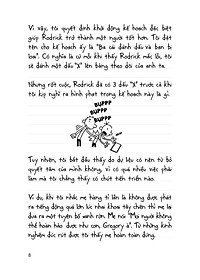 Vì vậy, tôi quyết định khởi động kế hoạch đặc biệt
giúp Rodrick trở thành một người tốt hơn. Tôi đặt
tên cho kế hoạch ấy là "Ba cái đánh dấu và bạn bị
loại". Có nghĩa là cứ mỗi khi thấy Rodrick mắc lỗi, tôi
sẽ đánh một dấu "X" lên bảng theo dõi của anh ta.
Nhưng rốt cuộc, Rodrick đã có 3 dấu "X" trước cả khi
tôi kịp nghĩ ra hình phạt trong kế hoạch này là gì.
BUPPP
BUPPP
BUPPP
BUPPP
Tuy nhiên, tôi bắt đầu thấy do dự liệu có nên từ bỏ
quyết tâm của mình không, vì có quá nhiều việc phải
làm mà tôi chẳng thấy có chút tiến triển nào.
Ví dụ, khi tôi nhắc mẹ hàng tỉ lần là không được phát
ra tiếng động quá lớn lúc nhai khoai tây chiên thì mẹ lại
đưa ra một tuyên bố xanh rờn. Mẹ nói: "Mọi người không
thể hoàn hảo được như con, Gregory à". Từ những kinh
nghiệm đúc rút được tôi thấy mẹ hoàn toàn đúng.
8